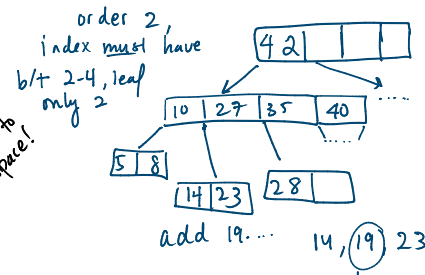 order 2,
index must have
b/t 2-4, leaf
only 2
to
space!
42
10 27 35 40
.....
.....
5 8
14 23
28
add 19....
14, 19, 23